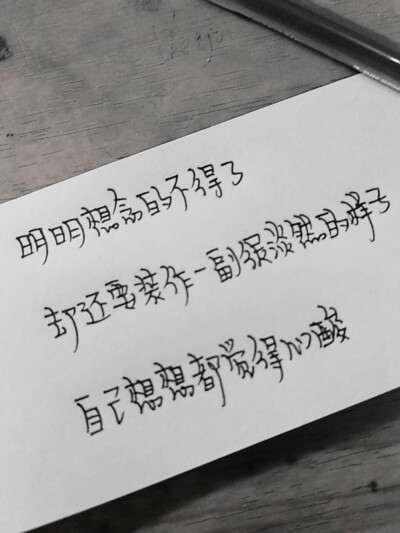 明明想念的不得了
却还要装作一副很淡然的样子
自己想想都觉得心酸